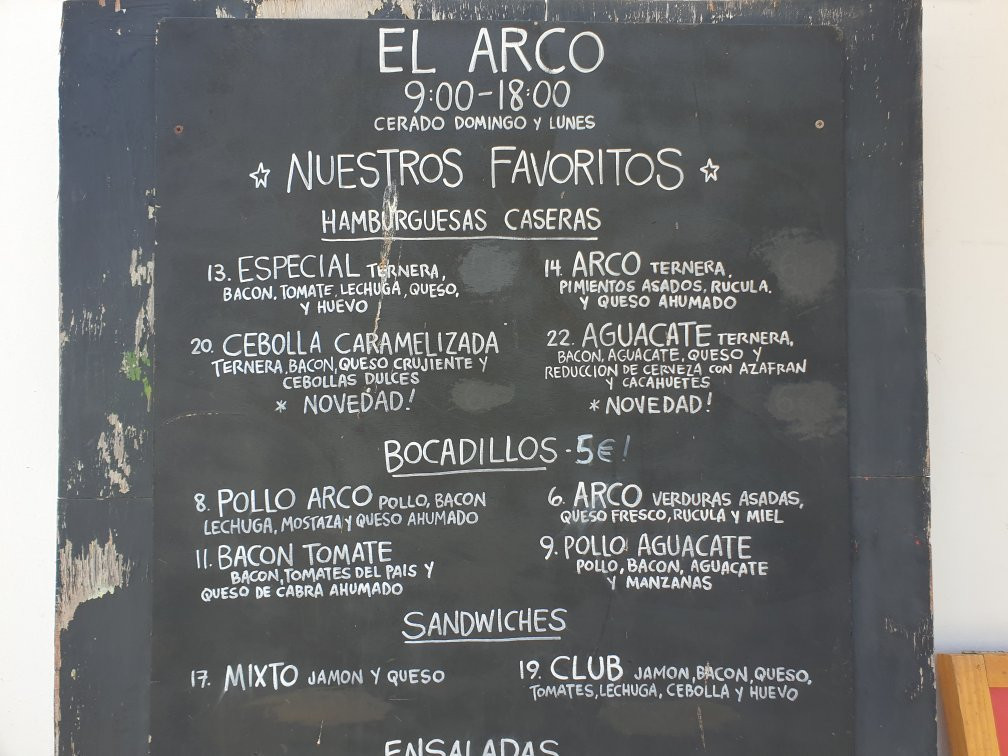 EL ARCO
9:00-18:00
CERADO DOMINGO Y LUNES
☆ NUESTROS FAVORITOS ☆
HAMBURGUESAS CASERAS
13. ESPECIAL TERNERA,
BACON, TOMATE, LECHUGA, QUESO,
Y HUEVO
14. ARCO TERNERA,
PIMIENTOS ASADOS, RUCULA,
Y QUESO AHUMADO
20. CEBOLLA CARAMELIZADA
TERNERA, BACON, QUESO CRUJIENTE Y
CEBOLLAS DULCES
* NOVEDAD!
22. AGUACATE TERNERA,
BACON, AGUACATE, QUESO Y
REDUCCION DE CERVEZA CON AZAFRAN
Y CACAHUETES
* NOVEDAD!
BOCADILLOS - 5€!
8. POLLO ARCO POLLO, BACON
LECHUGA, MOSTAZA Y QUESO AHUMADO
6. ARCO VERDURAS ASADAS,
QUESO FRESCO, RUCULA Y MIEL
11. BACON TOMATE
BACON, TOMATES DEL PAIS Y
QUESO DE CABRA AHUMADO
9. POLLO AGUACATE
POLLO, BACON, AGUACATE
Y MANZANAS
SANDWICHES
17. MIXTO JAMON Y QUESO
19. CLUB JAMON, BACON, QUESO,
TOMATES, LECHUGA, CEBOLLA Y HUEVO
ENSALADAS